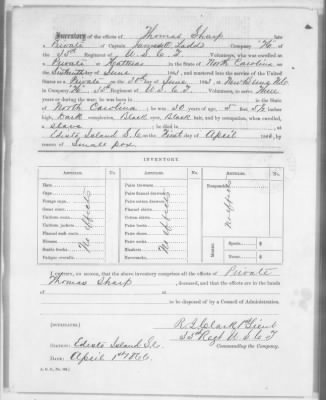 Inventory of the effects of Thomas Sharp late
Private of Captain James C. Ladd's Company "H"
35th Regiment of U. S. C. T. Volunteers, who was enrolled as
Private at Hatteras in the State of North Carolina on
the Sixteenth day of June 1863, and mustered into the service of the United
States as a Private on the 30th of June 1863, at New Berne N.C.
in Company "H" 35th Regiment of U. S. C. T. Volunteers, to serve Three
years or during the war; he was born in in the State
of North Carolina; he was 30 years of age, 5 feet 5½ inches
high, Dark complexion, Black eyes, Black hair, and by occupation, when enrolled,
a Slave; he died in at
Edisto Island S. C. on the First day of April 1866, by
reason of Small pox
INVENTORY.
Hats
Caps
Forage caps
Great coats
Uniform coats
Uniform jackets
Flannel sack coats
Blouses
Fatigue overalls
No effects
Pairs trowsers
Pairs flannel drawers
Pairs cotton drawers
Flannel shirts
Cotton shirts
Pairs boots
Pairs shoes
Pairs socks
Blankets
Haversacks
No effects
No effects
Money
Specie $
Notes $
I certify, on honor, that the above inventory comprises all the effects of Private
Thomas Sharp, deceased, and that the effects are in the hands
of at
to be disposed of by a Council of Administration.
(DUPLICATES.)
R. L. Clark 1st Lieut
35th Regt U. S. C. T
Commanding the Company.
STATION: Edisto Island S.C.
DATE: April 1st 1866.